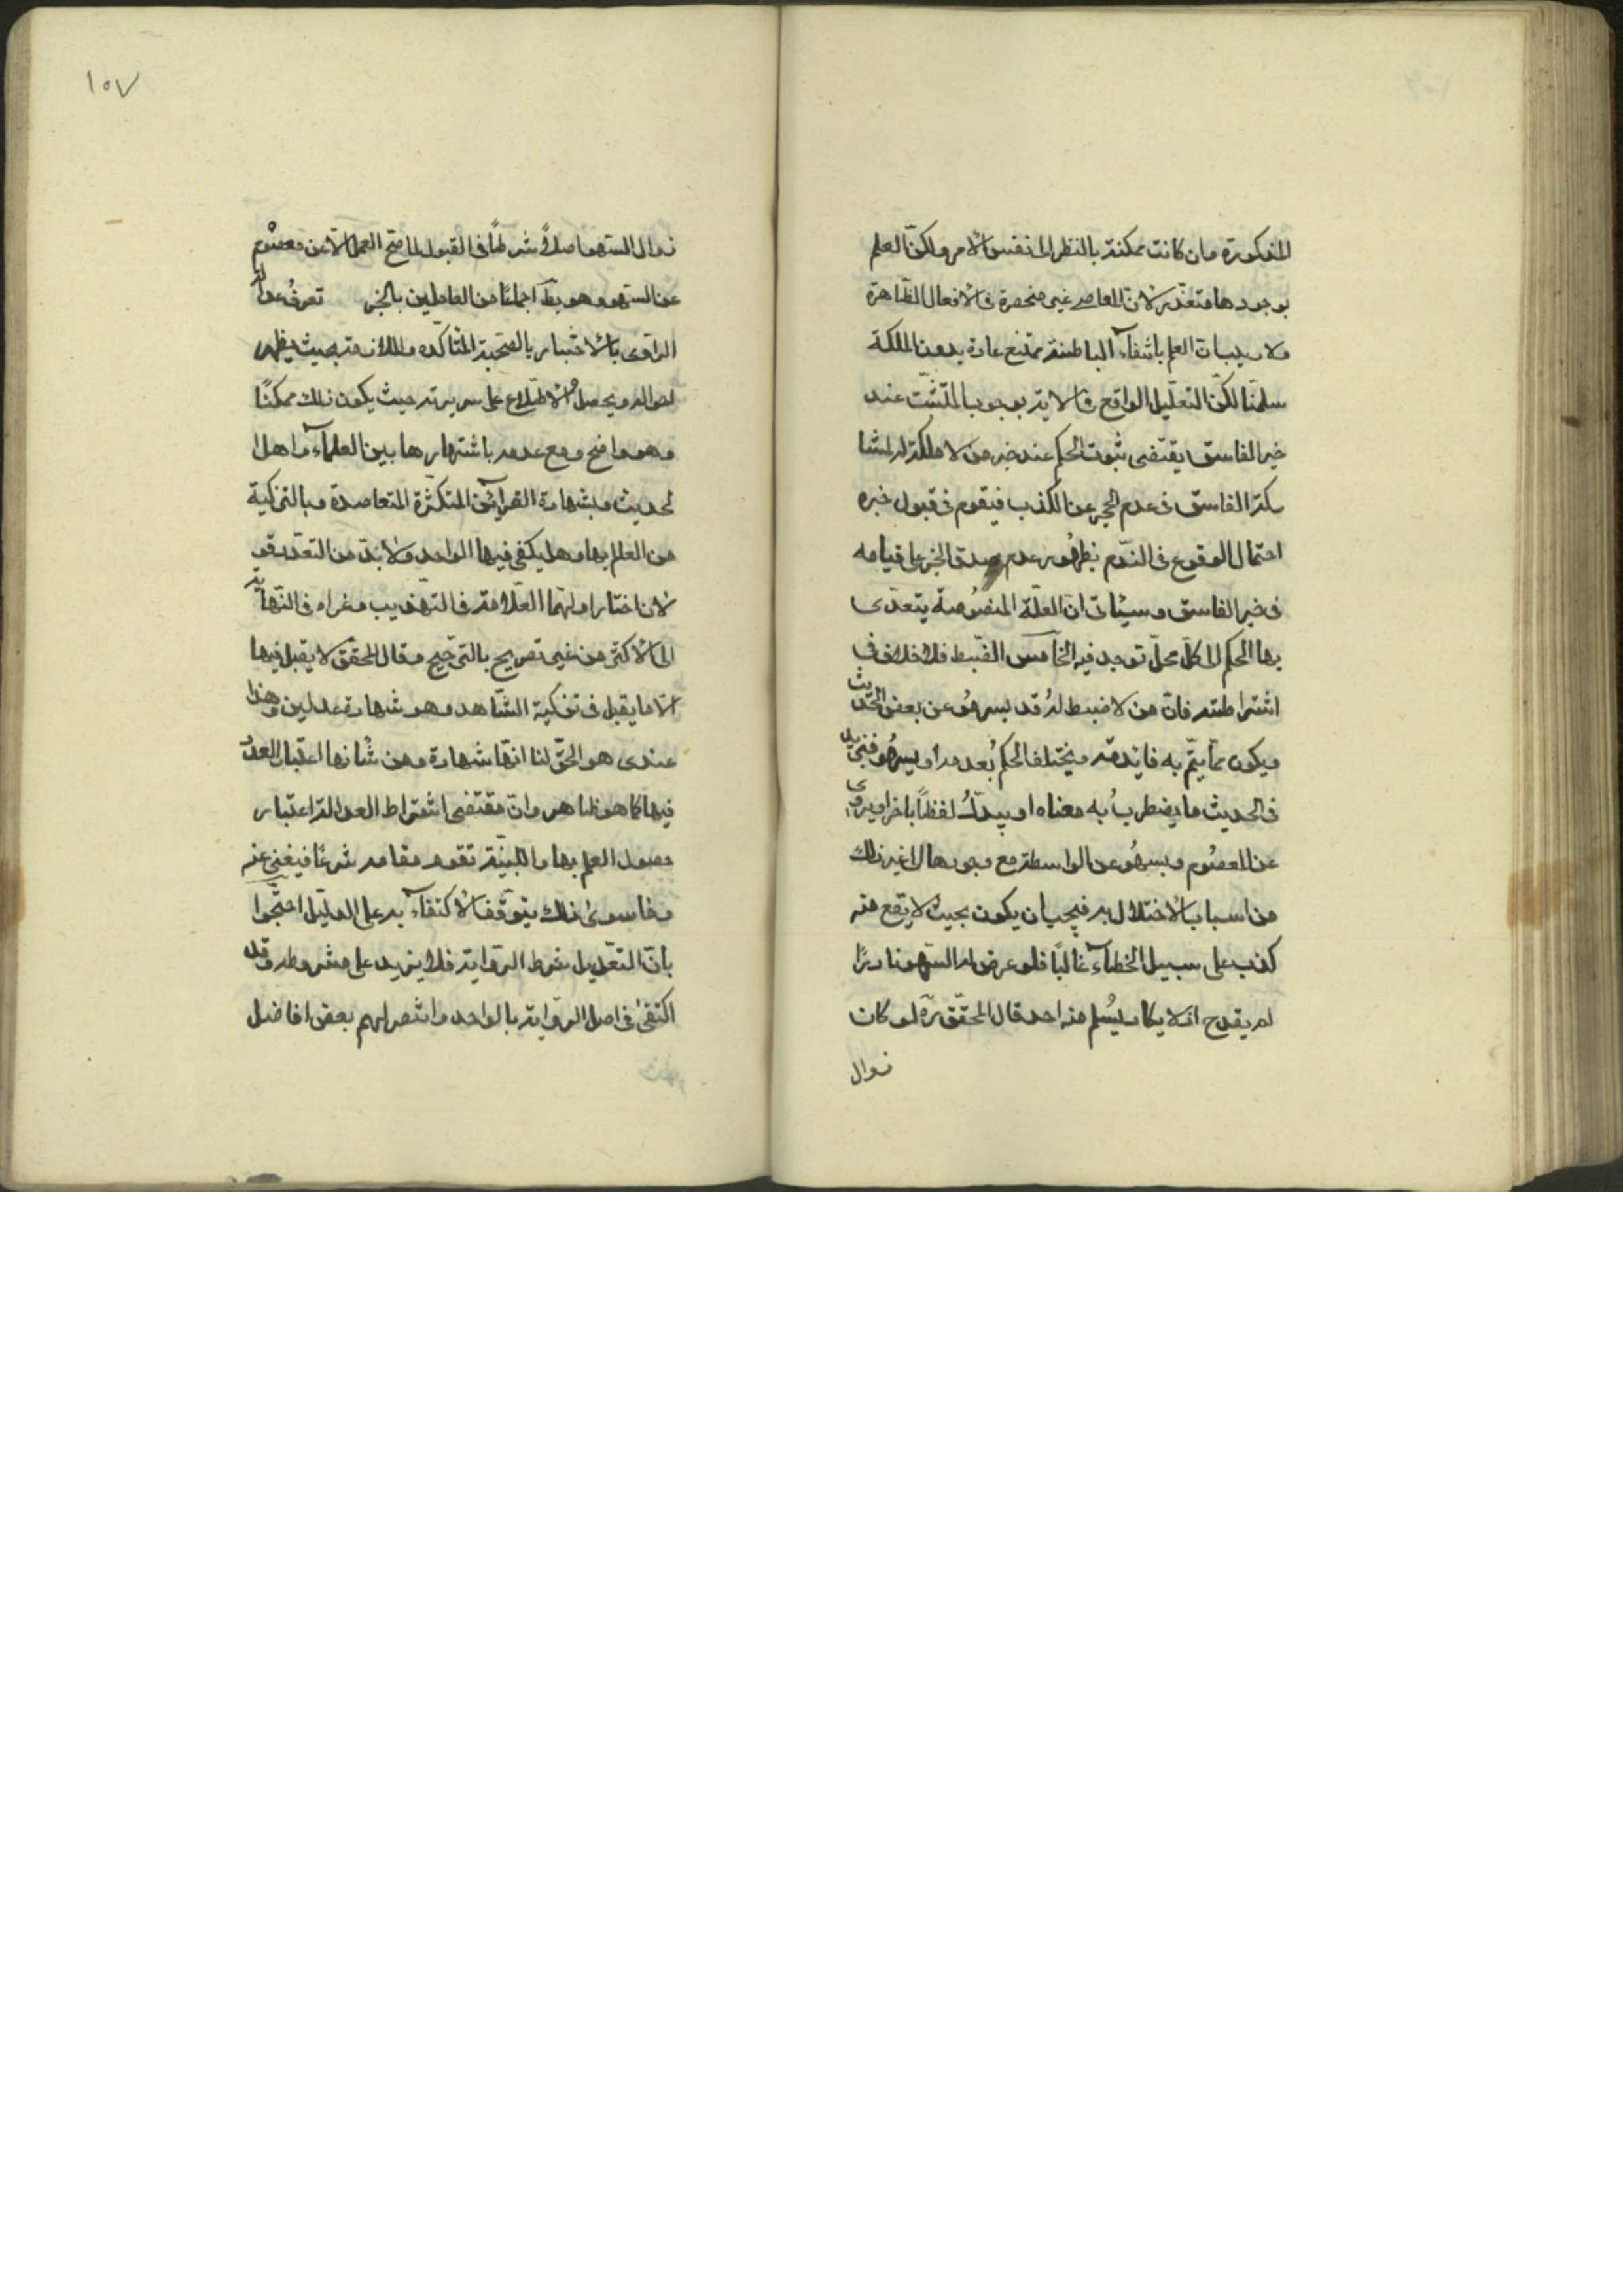 المذكورة وان كانت ممكنة بالنظر الى نفس الامر ولكنّ العلم
بوجودها متعذّر لان المعاصي غير منحصرة في الافعال الظاهرة
ولا ريب ان العلم بانتفاء الباطنة ممتنع عادة بدون الملكة
سلمنا لكنّ التعليل الواقع في الاية بوجوب التثبّت عند
خبر الفاسق يقتضى ثبوت الحكم عند خبر من لا ملكة له لمشا
ركة الفاسق في عدم الحجر عن الكذب فيقوم في قبول خبره
احتمال الوقوع في الندم بظهور عدم صدق الخبر على قيامه
في خبر الفاسق وسيأتي ان العلّة المنصوصة يتعدّى
بها الحكم الى كل محلّ توجد فيه الخامس الضبط فلا خلاف في
اشتراطه فانّ من لا ضبط له قد يسهو عن بعض الحديث
ويكون ممّا يتمّ به فائدته ويختلف الحكم بعدمه او يسهو فيزيد
في الحديث ما يضطرب به معناه او يبدل لفظاً باخر او يروى
عن المعصوم ويسهو عن الواسطة مع وجودها الى غير ذلك
من اسباب الاختلال به فيجب ان يكون بحيث لا يقع منه
كذب على سبيل الخطاء غالباً فلو عرض له السهو نادرًا
لم يقدح اذ لا يكاد يسلم منه احد قال المحقّق ره لو كان
زوال
١٠٧
زوال السهو اصلاً شرطاً في القبول لما صح العمل الا عن معصوم
عن السهو وهو بط اجماعًا من العاملين بالخبر تعرف عدالة
الراوى بالاختبار بالصحبة المتاكّده والملازمة بحيث يظهر
احواله ويحصل الاطلاع على سريرته حيث يكون ذلك ممكنًا
وهو واضح ومع عدمه باشتهارها بين العلماء واهل ا
لحديث وبشهادة القرائن المتكثّرة المتعاضدة وبالتزكية
من العالم بها وهل يكفى فيها الواحد ولا بدّ من التعدد قو
لان اختار اولهما العلامة في التهذيب وعزاه في النهاية
الى الاكثر من غير تصريح بالترجيح وقال المحقق لا يقبل فيها
الا ما يقبل في تزكية الشاهد وهو شهادة عدلين وهذا
عندى هو الحقّ لنا انها شهادة ومن شأنها اعتبار العدد
فيها كما هو ظاهر وانّ مقتضى اشتراط العدالة اعتبار
حصول العلم بها والبيّنة تقوم مقامه شرعًا فيغنى عنه
وما سوى ذلك يتوقف الاكتفاء به على الدليل احتجوا
بانّ التعديل شرط الرواية فلا يزيد على مشروطه وقد
اكتفى في اصل الرواية بالواحد وانتصر لهم بعض افاضل